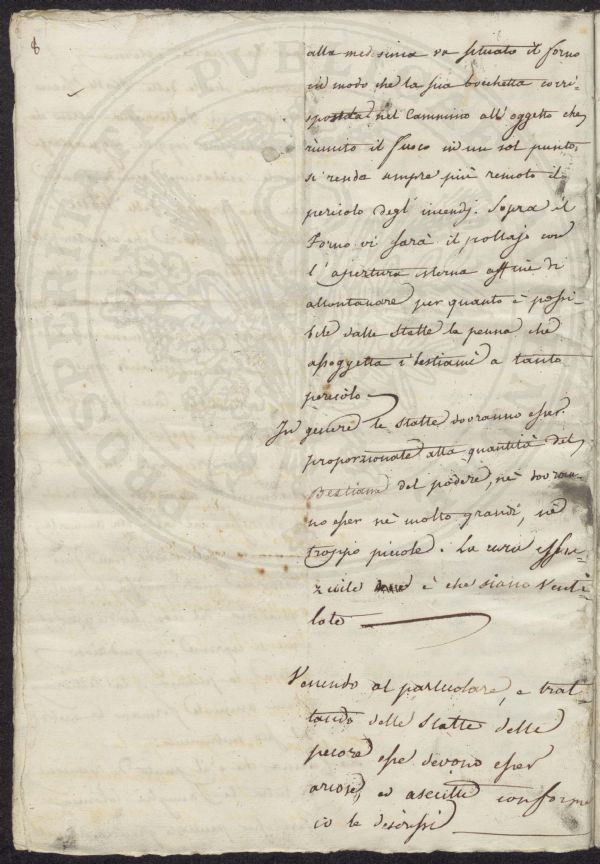 8
alla medesima va situato il forno
in modo che la sua bocchetta corri-
sponda nel Cammino all'oggetto che
riunito il fuoco in un sol punto,
si renda sempre più remoto il
pericolo degl'incendj. Sopra il
Forno vi sarà il pollajo con
l'apertura esterna affine di
allontanare per quanto è possi-
bile dalle Stalle la penna che
assoggetta i bestiami a tanto
pericolo
In genere le Stalle dovranno esser
proporzionate alla quantità del
Bestiame del podere, nè dovran-
no esser nè molto grandi, nè
troppo piccole. La cura essen-
ziale è che siano venti-
late
Venendo al particolare, e trat-
tando delle Stalle delle
pecore esse devono esser
ariose, ed asciutte conforme
io le descrissi